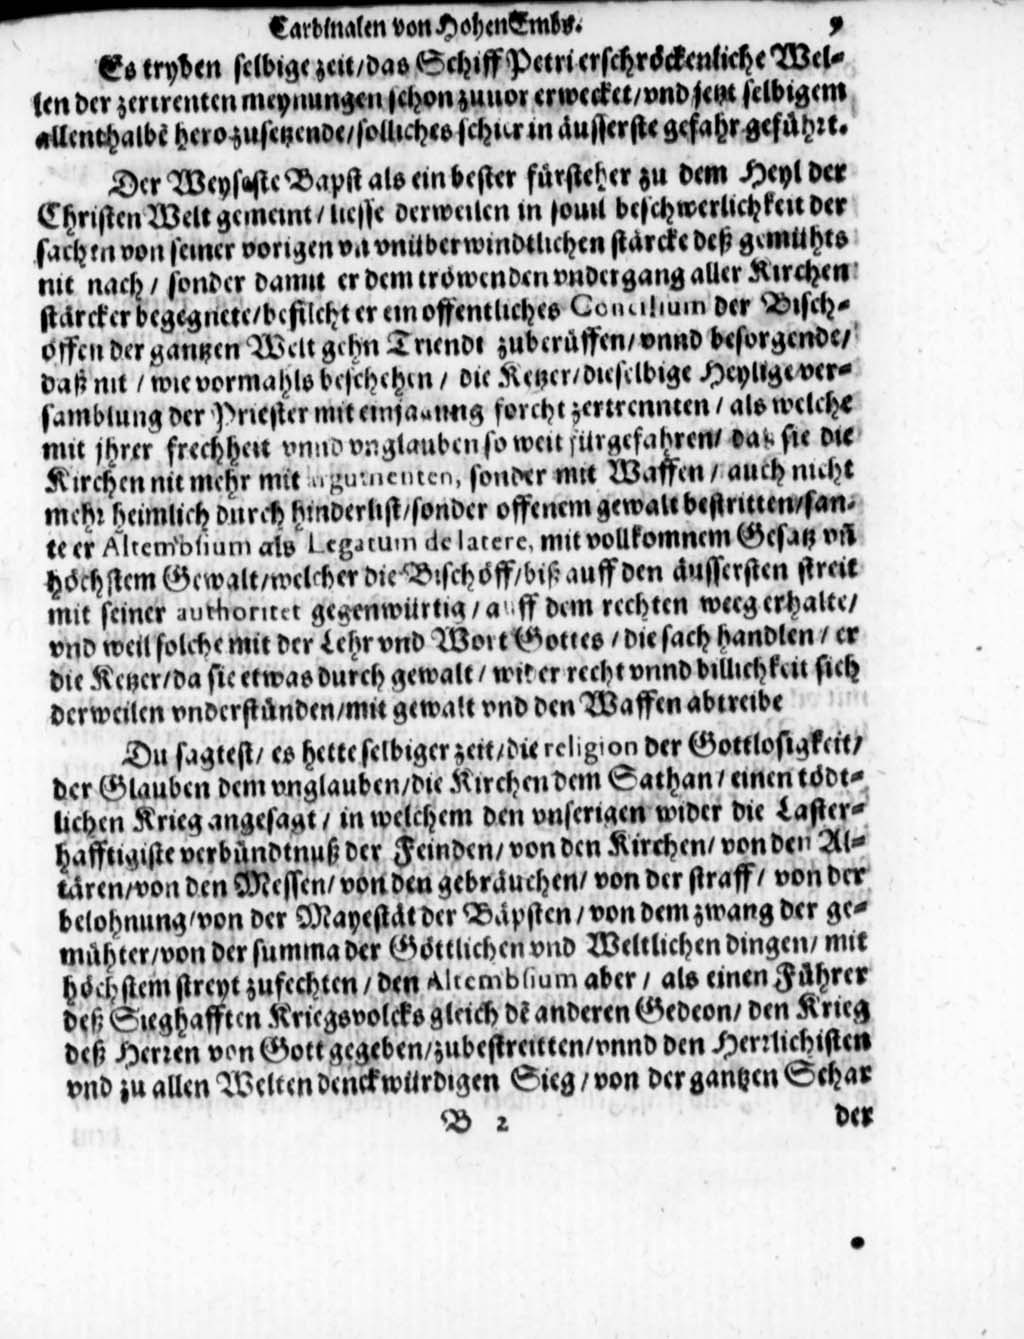 Cardinalen von HohenEmbs. 9
Es tryben selbige zeit/das Schiff Petri erschröckenliche Wel-
len der zertrenten meynungen schon zuuor erwecket/vnd jetzt selbigem
allenthalbē herozusetzende/solliches schier in äusserste gefahr geführt.
Der Weyseste Bapst als ein bester fürsteher zu dem Heyl der
Christen Welt gemeint/liesse derweilen in souil beschwerlichkeit der
sachen von seiner vorigen vn vnüberwindtlichen stärcke deß gemühts
nit nach/ sonder damit er dem tröwenden vndergang aller Kirchen
stärcker begegnete/befilcht er ein offentliches Concilium der Bisch-
öffen der gantzen Welt gehn Triendt zuberüffen/vnnd besorgende/
daß nit / wie vormahls beschehen / die Ketzer/dieselbige Heylige ver-
samblung der Priester mit einjagung forcht zertrennten / als welche
mit jhrer frechheit vnnd vnglauben so weit fürgefahren/ daß sie die
Kirchen nit mehr mit argumenten, sonder mit Waffen / auch nicht
mehr heimlich durch hinderlist/sonder offenem gewalt bestritten/san-
te er Altembsium als Legatum de latere, mit vollkomnem Gesatz vn̄
höchstem Gewalt/welcher die Bischöff/biß auff den äussersten streit
mit seiner authoritet gegenwürtig/auff dem rechten weeg erhalte/
vnd weil solche mit der Lehr vnd Wort Gottes / die sach handlen/ er
die Ketzer/da sie etwas durch gewalt / wider recht vnnd billichkeit sich
derweilen vnderstünden/mit gewalt vnd den Waffen abtreibe
Du sagtest/ es hette selbiger zeit/die religion der Gottlosigkeit/
der Glauben dem vnglauben/die Kirchen dem Sathan/ einen tödt-
lichen Krieg angesagt / in welchem den vnserigen wider die Laster-
hafftigiste verbündtnuß der Feinden/von den Kirchen/ von den Al-
tären/von den Messen/ von den gebräuchen/ von der straff/ von der
belohnung/von der Mayestät der Bäpsten/von dem zwang der ge-
mühter/von der summa der Göttlichen vnd Weltlichen dingen/ mit
höchstem streyt zufechten / den Altembsium aber / als einen Führer
deß Sieghafften Kriegsvolcks gleich dē anderen Gedeon/ den Krieg
deß Herren von Gott gegeben/zubestreitten/vnnd den Herrlichisten
vnd zu allen Welten denckwürdigen Sieg/von der gantzen Schar
B 2 der